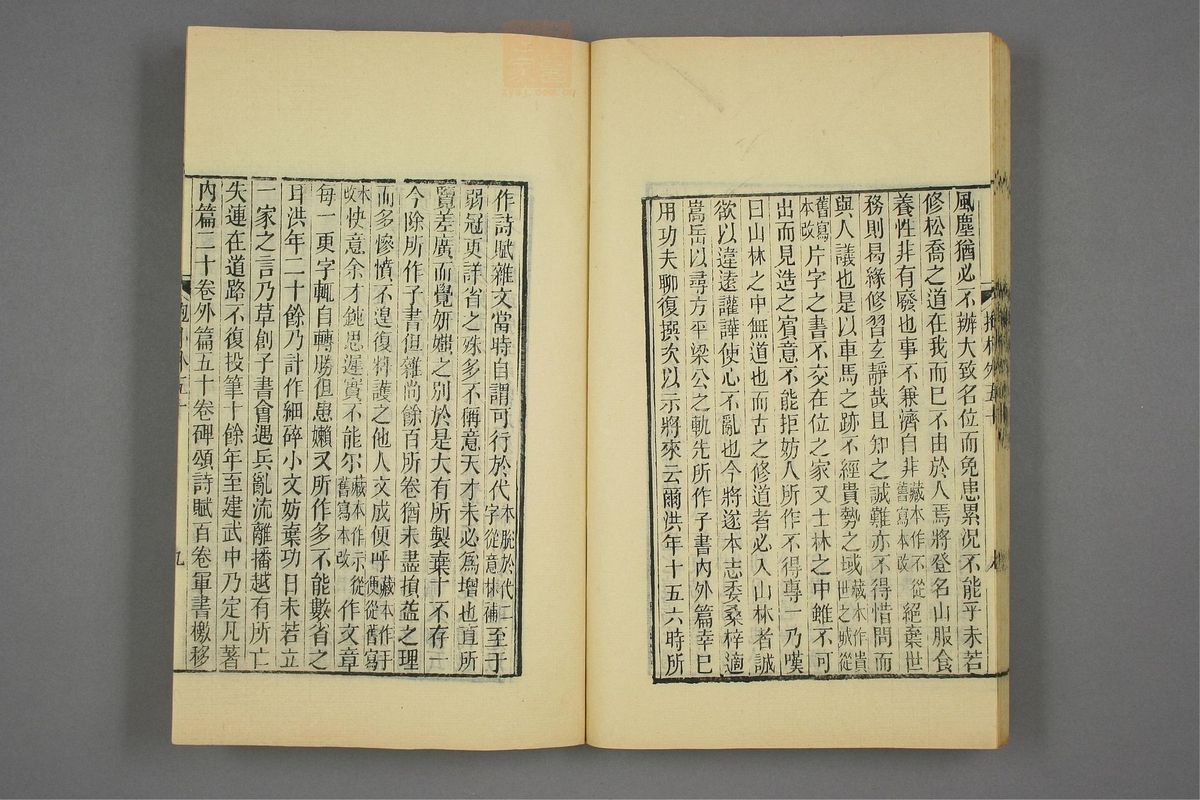 風塵猶必不辦大致名位而免患累況不能乎未若
修松喬之道在我而已不由於人焉將登名山服食
養性非有廢也事不兼濟自非藏本作不從舊寫本改絕棄世
務則曷緣修習玄靜哉且知之誠難亦不得惜問而
與人議也是以車馬之跡不經貴勢之域藏本作貴世之域從
舊寫本改片字之書不交在位之家又士林之中雖不可
出而見造之賓意不能拒妨人所作不得專一乃嘆
曰山林之中無道也而古之修道者必入山林者誠
欲以違遠讙譁使心不亂也今將遂本志委桑梓適
嵩岳以尋方平梁公之軌先所作子書內外篇幸已
用功夫聊復撰次以示將來云爾洪年十五六時所
作詩賦雜文當時自謂可行於代本脫於代二字從意林補至于
弱冠更詳省之殊多不稱意天才未必為增也直所
覽差廣而覺妍媸之別於是大有所製棄十不存一
今除所作子書但雜尚餘百所卷猶未盡損益之理
而多慘憤不遑復料護之他人文成便呼藏本作手便從舊寫
本改快意余才鈍思遲實不能尔藏本作示從舊寫本改作文章
每一更字輒自轉勝但患嬾又所作多不能數省之
耳洪年二十餘乃計作細碎小文妨棄功日未若立
一家之言乃草創子書會遇兵亂流離播越有所亡
失連在道路不復投筆十餘年至建武中乃定凡著
內篇二十卷外篇五十卷碑頌詩賦百卷軍書檄移
九